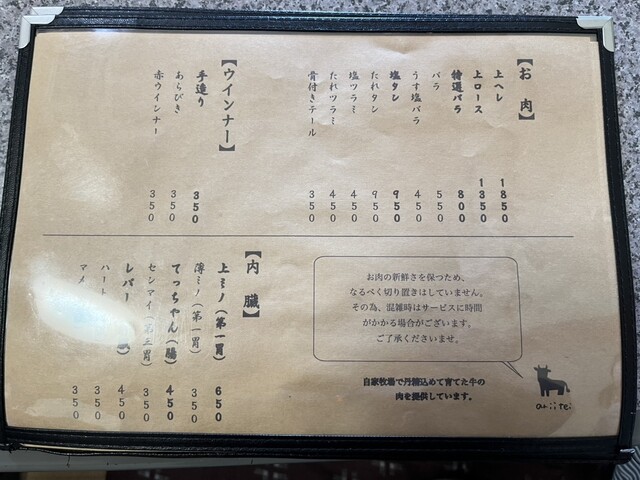 【お肉】
上ヘレ 1850
上ロース 1350
特選バラ 800
バラ 550
うす塩バラ 450
塩タン 950
たれタン 950
塩ツラミ 450
たれツラミ 450
骨付きテール 350
【ウインナー】
手造り 350
あらびき 350
赤ウインナー 350
【内臓】
上ミノ(第一胃) 650
薄ミノ(第一胃) 350
てっちゃん(腸) 450
センマイ(第三胃) 350
レバー 450
ハート 350
マメ 350
お肉の新鮮さを保つため、
なるべく切り置きはしていません。
その為、混雑時はサービスに時間
がかかる場合がございます。
ご了承くださいませ。
自家牧場で丹精込めて育てた牛の
肉を提供しています。